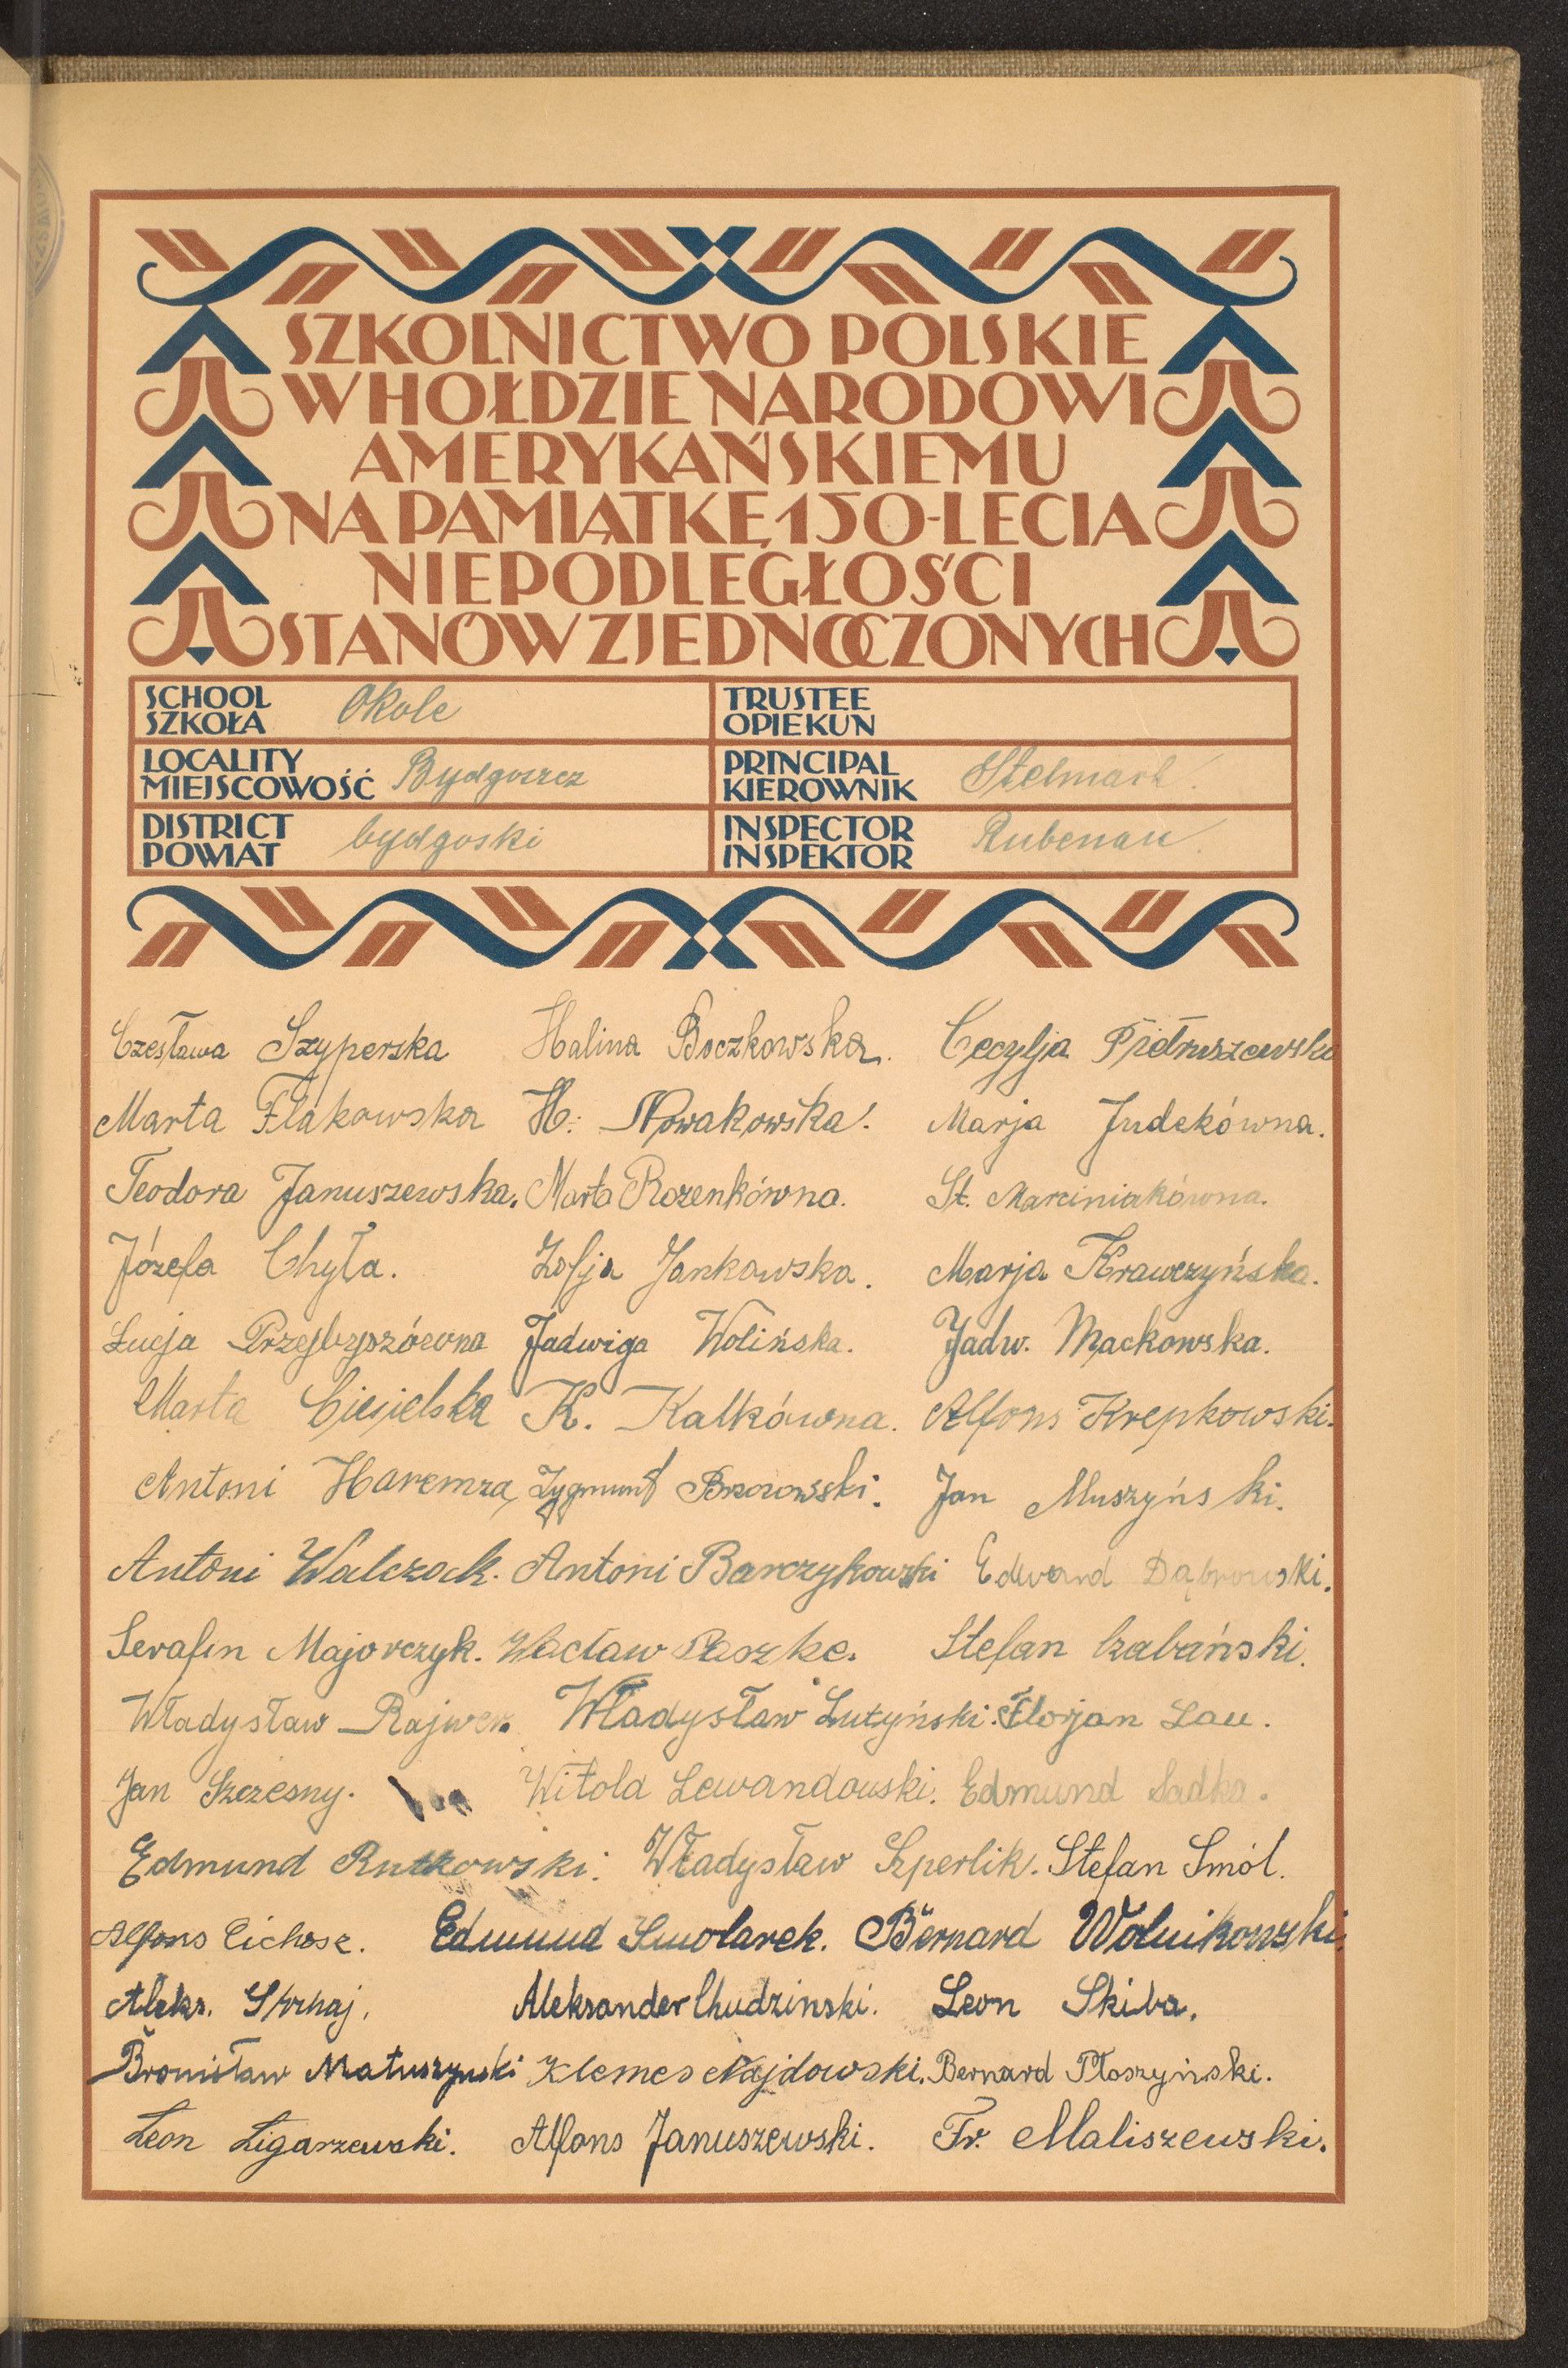 SZKOLNICTWO POLSKIE
W HOŁDZIE NARODOWI
AMERYKAŃSKIEMU
NA PAMIĄTKĘ 150-LECIA
NIEPODLEGŁOŚCI
STANÓW ZJEDNOCZONYCH
SCHOOL
SZKOŁA Okole
TRUSTEE
OPIEKUN
LOCALITY
MIEJSCOWOŚĆ Bydgoszcz
PRINCIPAL
KIEROWNIK Stelmach.
DISTRICT
POWIAT bydgoski
INSPECTOR
INSPEKTOR Rubenau.
Czesława Szyperska Halina Boczkowska. Cecylja Pietruszewska
Marta Flakowska H. Nowakowska. Marja Judekówna.
Teodora Januszewska. Marta Rozenkówna. St. Marciniakówna.
Józefa Chyła. Zofja Jankowska. Marja Krawczyńska.
Łucja Przejbyszówna Jadwiga Wolińska. Jadw. Mackowska.
Marta Ciesielska K. Kalkówna. Alfons Krepkowski.
Antoni Haremza, Zygmunt Brzozowski. Jan Muszyński.
Antoni Walczack. Antoni Barczykowski Edward Dąbrowski.
Serafin Majorczyk. Wacław Paszke. Stefan Czabański.
Władysław Rajwer. Władysław Lutyński. Florjan Lau.
Jan Szczesny. Witold Lewandowski. Edmund Sadka.
Edmund Rutkowski. Władysław Szperlik. Stefan Smól.
Alfons Cichosz. Edmund Smolarek. Bernard Wolnikowski.
Aleks. Aleksander Chudzinski. Leon Skiba.
Bronisław Matuszynski Klemes Najdowski. Bernard Płoszyński.
Leon Ligarzewski. Alfons Januszewski. Fr. Maliszewski.